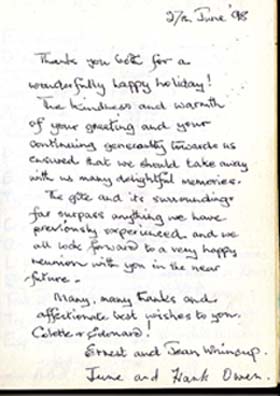 27th June '98
Thank you both for a
wonderfully happy holiday!
The kindness and warmth
of your greeting and your
continuing generosity towards us
ensured that we should take away
with us many delightful memories.
The gîte and its surroundings
far surpass anything we have
previously experienced, and we
all look forward to a very happy
reunion with you in the near
future.
Many, many thanks and
affectionate best wishes to you,
Colette & Edouard!
Ernest and Jean
June and Hank Owen.